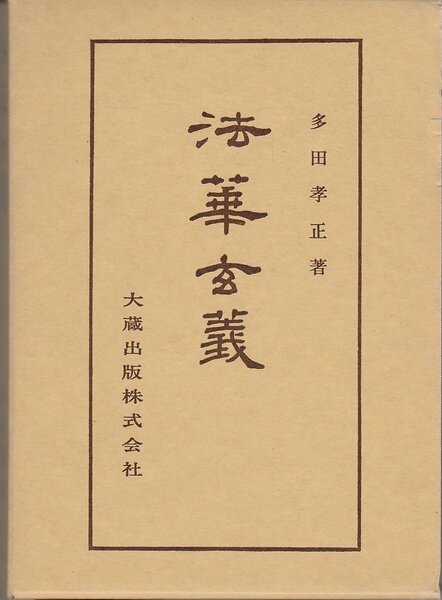 多田孝正著
法華玄義
大蔵出版株式会社